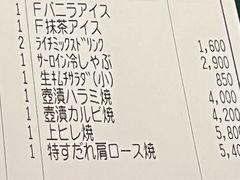 1 Fバニラアイス
1 F抹茶アイス
2 ライチミックスドリンク 1,600
1 サーロイン冷しゃぶ 2,900
1 生キムチサラダ(小) 850
1 壺漬ハラミ焼 4,000
1 壺漬カルビ焼 4,200
1 上ヒレ焼 5,800
1 特すだれ肩ロース焼 5,40